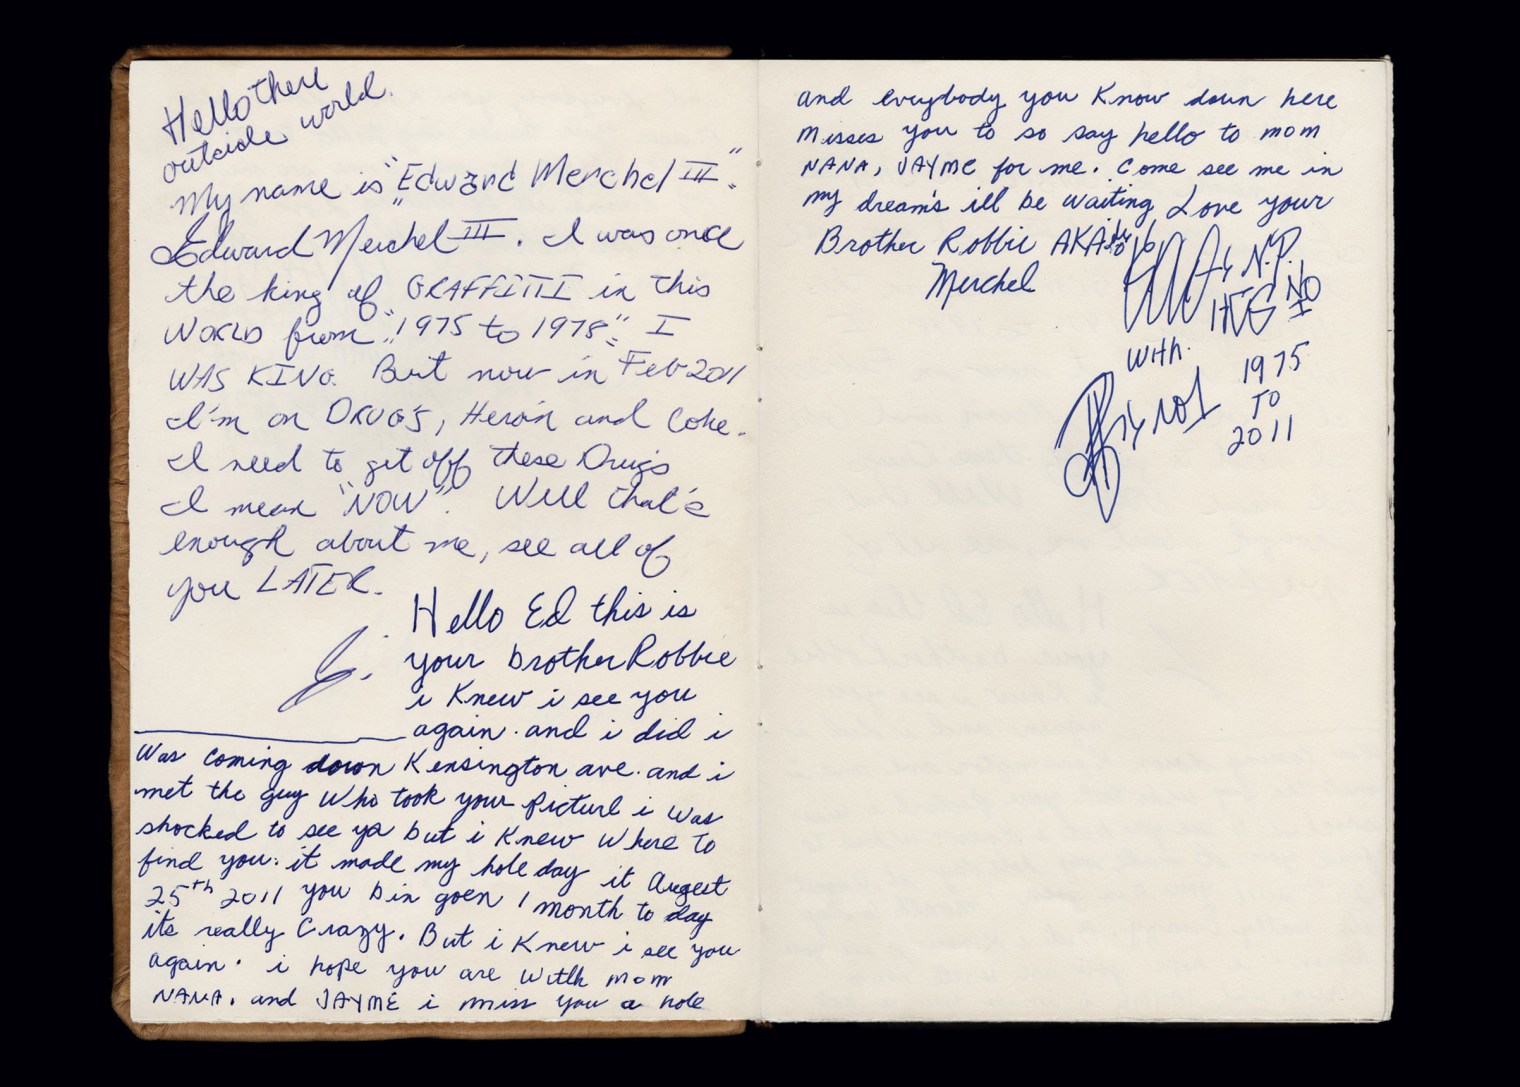 Hello there
outside world.
My name is "Edward Merchel III".
Edward Merchel III. I was once
the king of GRAFFITTI in this
WORLD from "1975 to 1978" I
WAS KING. But now in Feb 2011
I'm on DRUG'S, Heroin and Coke.
I need to get off these Drugs
I mean "NOW". Will that's
enough about me, see all of
you LATER.
Hello Ed this is
your brother Robbie
i Knew i see you
again. and i did i
Was coming down Kensington ave. and i
met the guy Who took your picture i was
shocked to see ya but i Knew where to
find you. it made my hole day it Augest
25th 2011 you bin goen 1 month to day
its really Crazy. But i Knew i see you
again. i hope you are with mom
NANA. and JAYME i miss you a hole
and everybody you Know down here
misses you to so say hello to mom
NANA, JAYME for me. Come see me in
my dream's ill be waiting Love your
Brother Robbie AKA
Merchel
N.P.
NO
I
With.
1975
TO
2011